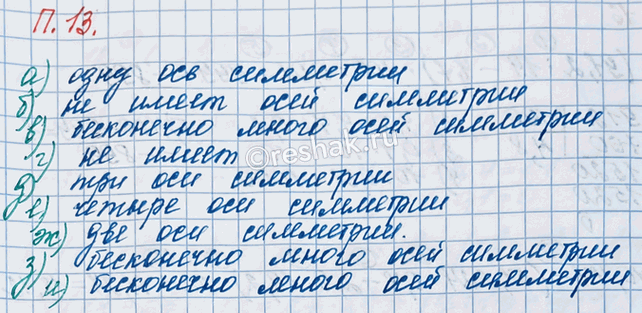 П. 13.
а) одну ось симметрии
б) не имеет осей симметрии
в) бесконечно много осей симметрии
г) не имеет
©reshak.ru
д) три оси симметрии
е) четыре оси симметрии
ж) две оси симметрии.
з) бесконечно много осей симметрии
и) бесконечно много осей симметрии